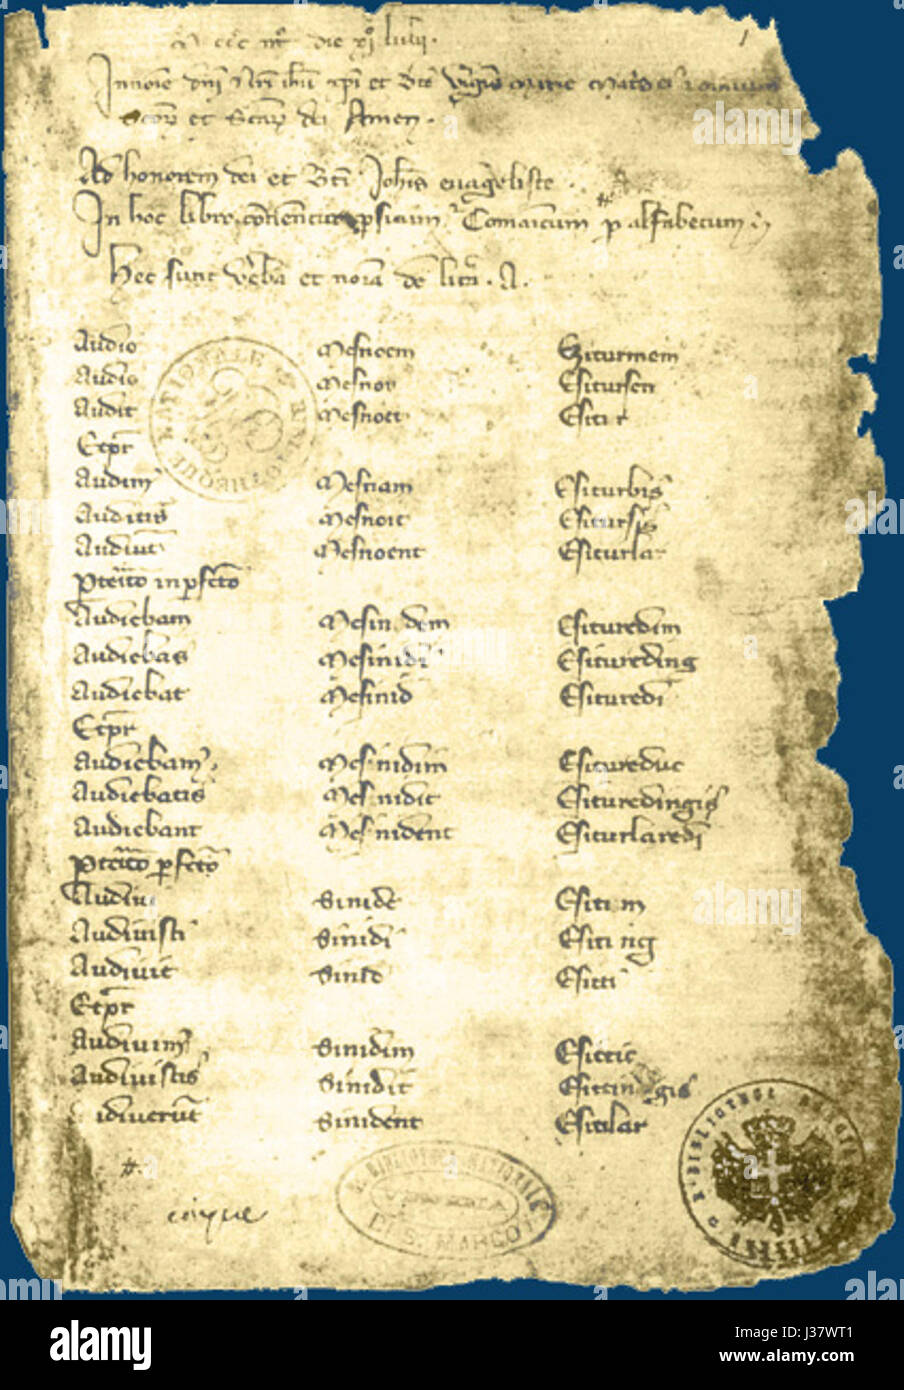 M ccc iij die xj Iulij. 1
In noie dni nri ihu xpi et bte Virginis Marie Matris ei 7 omnium
Scorum et Scarum dei Amen.
Ad honorem dei et Bti Johis euangeliste
In hoc libro continentur persicum 7 Comanicum per alfabetum
Hec sunt verba et noia de litra. A.
Audio Mesnoem Esiturmem
Audis Mesnoy Esitursen
Audit Mesnoet Esitur
Et plr
Audim Mesnam Esiturbis
Auditis Mesnoit Esitursis
Audiut Mesnoent Esiturlar
Pteito inperfecto
Audiebam Mesinidem Esituredim
Audiebas Mesinidi Esitureding
Audiebat Mesinid Esituredi
Et plr
Audiebam Mesinidim Esithureduc
Audiebatis Mesinidit Esituredingis
Audiebant Mesinident Esiturlaredi
Pteito perfcto
Audiui Sinide Esitim
Audiuisti Sinidi Esiting
Audiuit Sinid Esitti
Et plr
Audiuim Sinidim Esittic
Audiuistis Sinidit Esittingis
Audiuerut Sinident Esitilar
BIBLIOTHEQUE NATIONALE
R. BIBLIOTECA NAZIONALE
DI S. MARCO
alamy
alamy stock photo
J37WT1
www.alamy.com